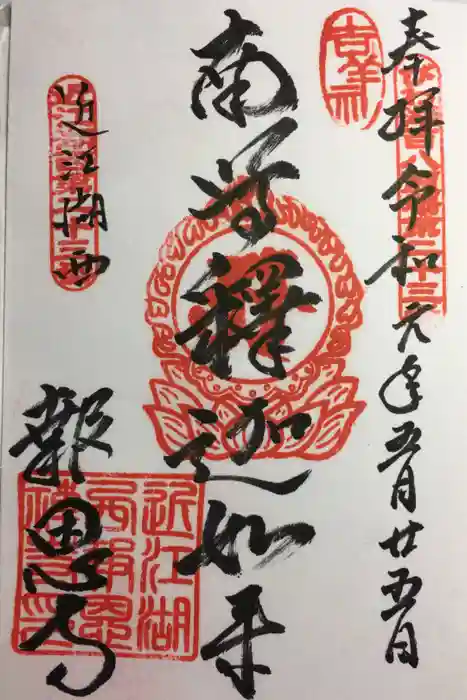 奉拝令和元年五月廿五日
吉祥
南無釋迦如来
近江湖西
報恩寺
近江湖
西報恩